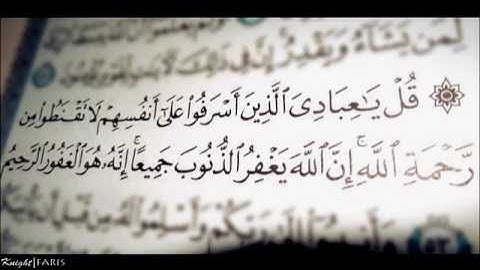 لِمَن يَشَآءُ وَيَقْدِرُ إِنَّ فِي ذَٰلِكَ
۞ قُلْ يَـٰعِبَادِىَ ٱلَّذِينَ أَسْرَفُوا۟ عَلَىٰٓ أَنفُسِهِمْ لَا تَقْنَطُوا۟ مِن
رَّحْمَةِ ٱللَّهِ ۚ إِنَّ ٱللَّهَ يَغْفِرُ ٱلذُّنُوبَ جَمِيعًا ۚ إِنَّهُۥ هُوَ ٱلْغَفُورُ ٱلرَّحِيمُ
٥٣ رَبِّكُمْ وَأَسْلِمُوا۟ لَهُۥ مِن قَبْلِ أَن
Knight|FARIS